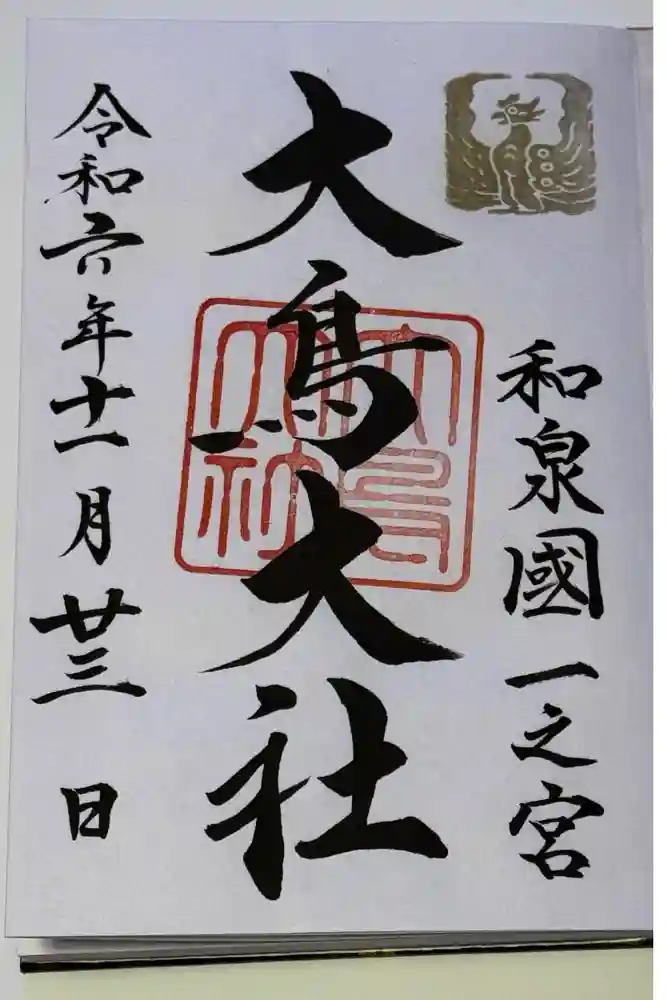 和泉國一之宮
大鳥大社
大鳥大社
令和六年十一月廿三日